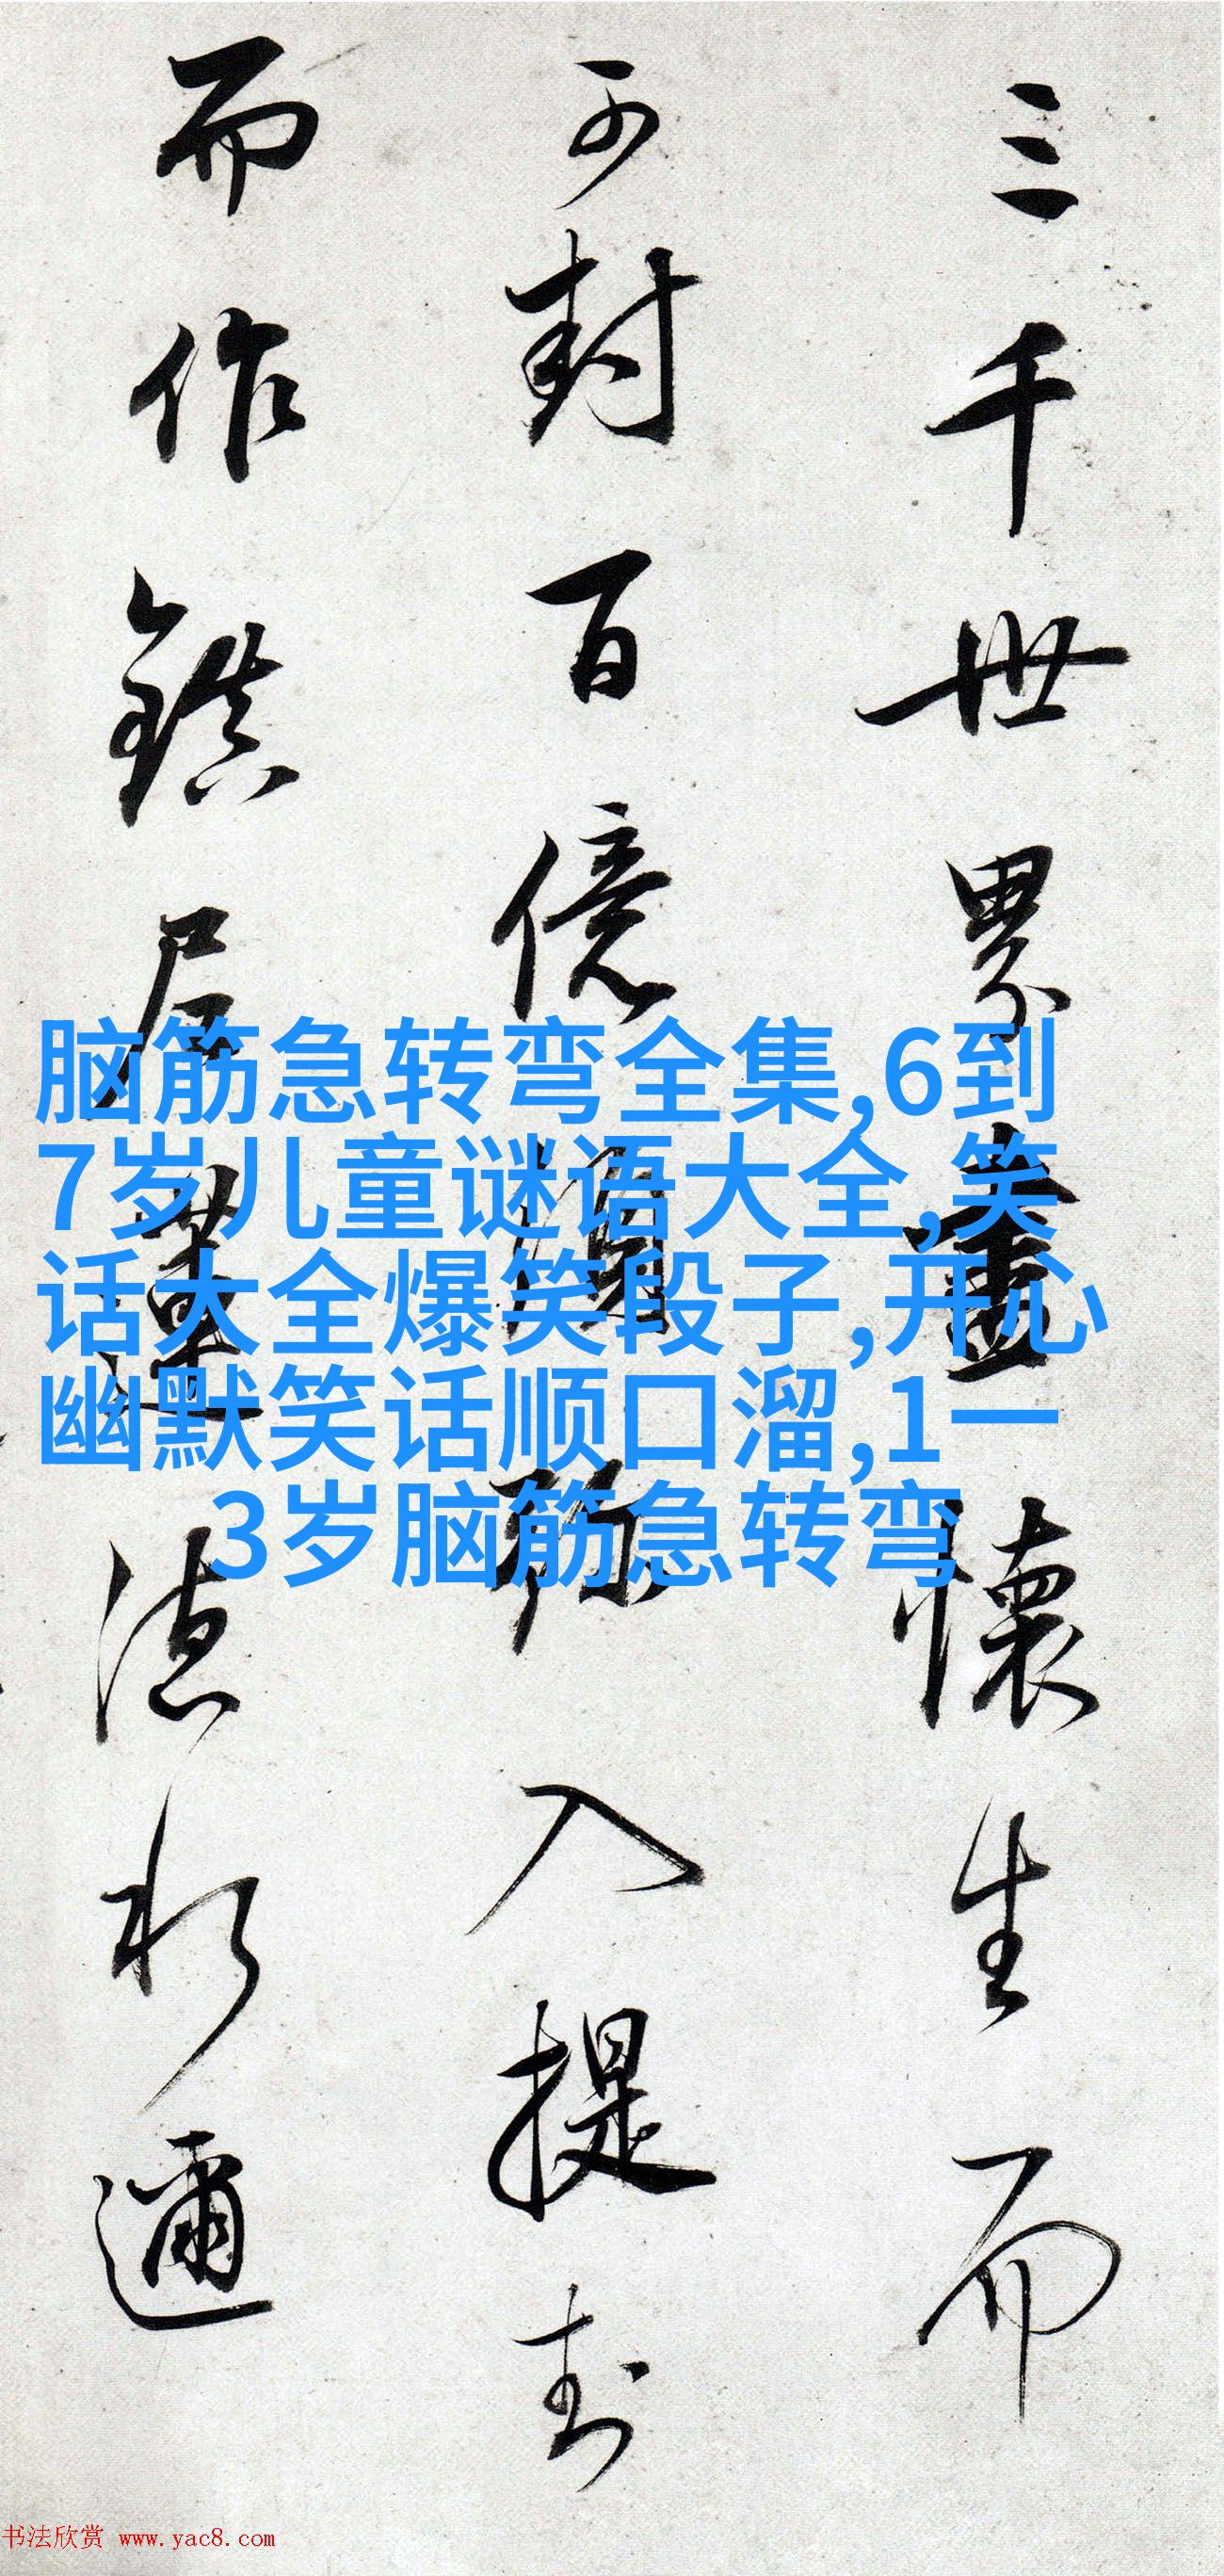 三千世累盡懷生而
可封百億須弥入提封
而作鎮居蓮
德水邇
脑筋急转弯全集,6到
7岁儿童谜语大全,笑
话大全爆笑段子,开心
幽默笑话顺口溜,1一
3岁脑筋急转弯
书法欣赏 www.yac8.com